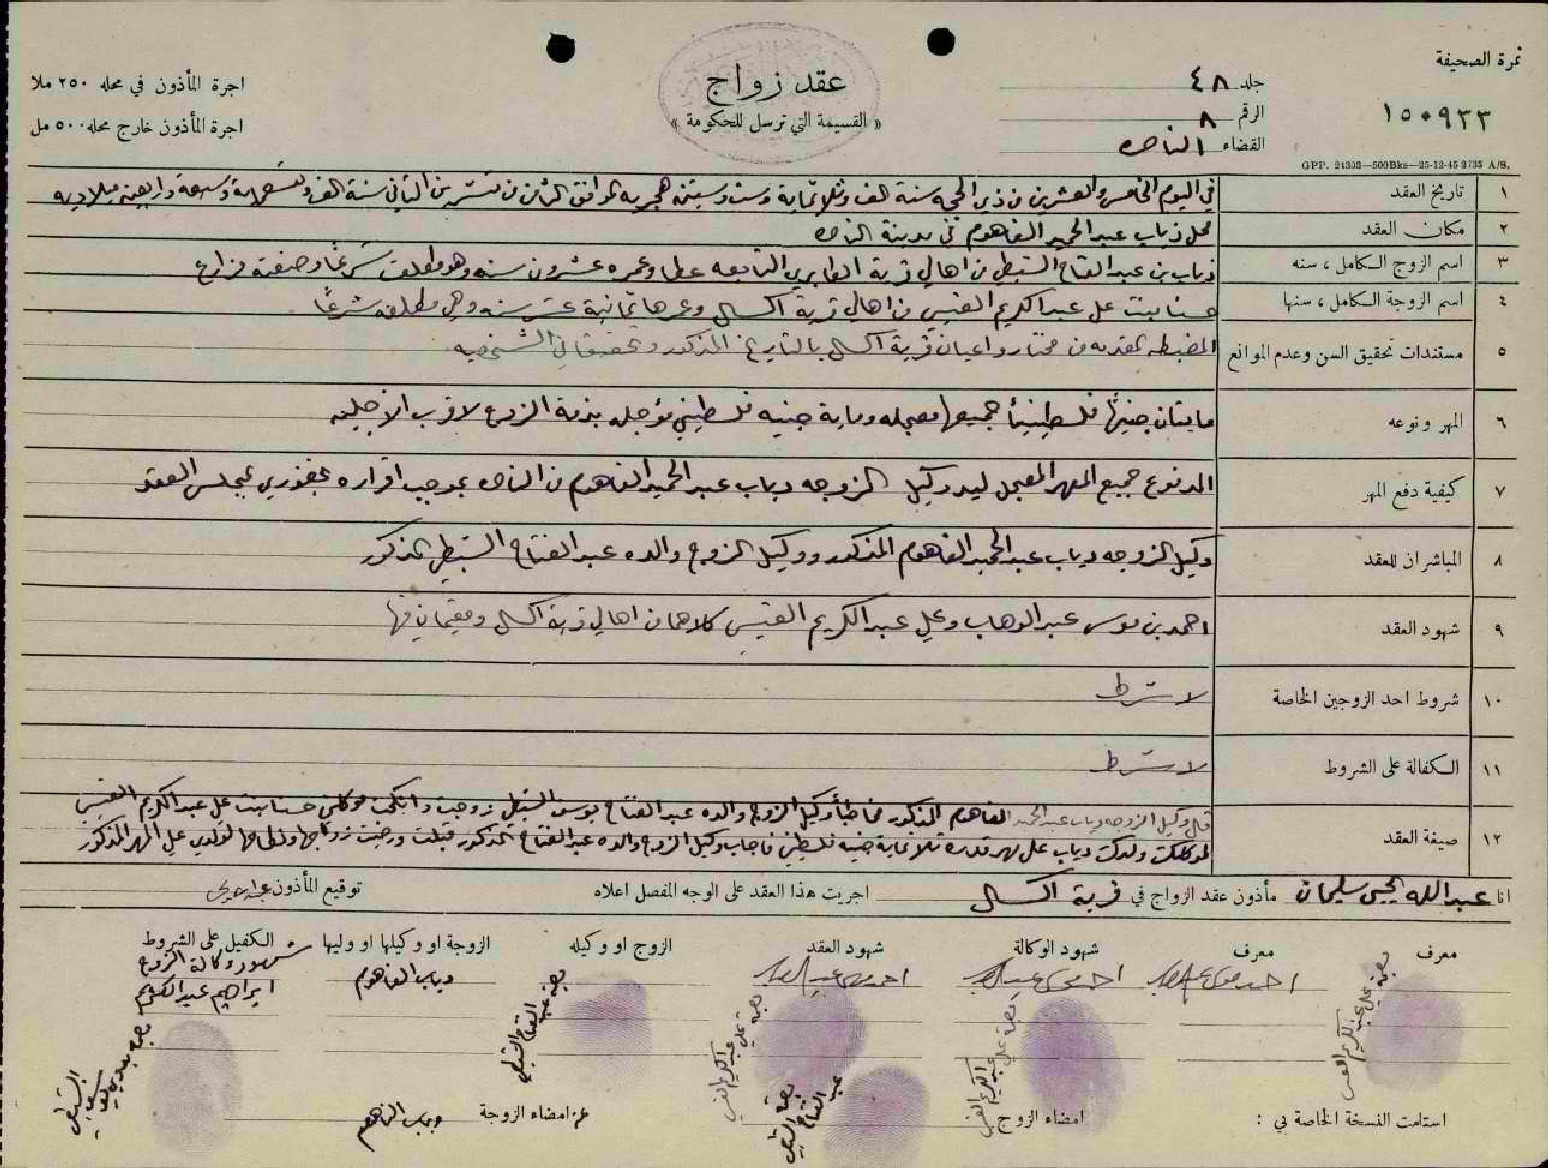 نمرة الصحيفة
١٥٠٩٢٣
جلد ٤٨
الرقم ٨
القضاء الناصره
عقد زواج
« القسيمة التي ترسل للحكومة »
اجرة المأذون في محله ٢٥٠ ملا
اجرة المأذون خارج محله ٥٠٠ مل
GPP. 24353—500Bks—25-12-45 2735 A/S.
١ تاريخ العقد في اليوم الخامس والعشرين من ذي الحجه سنة الف وثلاثماية وست وستين هجريه الموافق الثامن من تشرين الثاني سنة الف وتسعماية وسبعة واربعين ميلاديه
٢ مكان العقد محل ذياب عبد الحميد الفاهوم في مدينة الناصره
٣ اسم الزوج الكامل ، سنه ذياب بن عبد الفتاح الشبطي من اهالي قرية التابعه وعمره عشرون سنه وهو مطلق شرعًا وصنعته مزارع
٤ اسم الزوجة الكامل ، سنها حسنا بنت علي عبد الكريم القيسي من اهالي قرية اكسال وعمرها ثمانية عشر سنه وهي مطلقه شرعًا
٥ مستندات تحقيق السن وعدم الموانع المضبطه المقدمه من مختار واعيان قرية اكسال بالتاريخ المذكور وتحقيقاتي الشخصيه
٦ المهر ونوعه مايتان جنيهًا فلسطينيًا جميعها معجله وماية جنيه فلسطيني مؤجله بذمة الزوج لاقرب الاجلين
٧ كيفية دفع المهر المدفوع جميع المهر المعجل ليد وكيل الزوجه دياب عبد الحميد الفاهوم من الناصره بموجب اقراره بحضوري بمجلس العقد
٨ المباشران للعقد وكيل الزوجه دياب عبد الحميد الفاهوم المذكور ووكيل الزوج والده عبد الفتاح الشبطي المذكور
٩ شهود العقد احمد بن موسى عبد الوهاب وعلي عبد الكريم القيسي كلاهما من اهالي قرية اكسال ومقيمان فيها
١٠ شروط احد الزوجين الخاصة لا شرط
١١ الكفالة على الشروط لا شرط
١٢ صيغة العقد قال وكيل الزوجه دياب عبد الحميد الفاهوم المذكور مخاطبًا وكيل الزوج والده عبد الفتاح يوسف الشبطي زوجت وانكحت موكلتي حسنا بنت علي عبد الكريم القيسي
لموكلك ولدك دياب على مهر قدره ثلاثماية جنيه فلسطيني فاجاب وكيل الزوج والده عبد الفتاح المذكور قبلت ورضيت زواجها ونكاحها لولدي على المهر المذكور
انا عبد الله سليمان مأذون عقد الزواج في قرية اكسال اجريت هذا العقد على الوجه المفصل اعلاه توقيع المأذون
معرف معرف شهود الوكالة شهود العقد الزوج او وكيله الزوجة او وكيلها او وليها الكفيل على الشروط
شهود وكالة الزوج
بصمة علي عبد الكريم القيسي
احمد موسى عبد الوهاب
احمد موسى عبد الوهاب
بصمة علي عبد الكريم القيسي
احمد موسى عبد الوهاب
بصمة علي عبد الكريم القيسي
بصمة عبد الفتاح الشبطي
دياب الفاهوم
ابراهيم عبد الكريم
استلمت النسخة الخاصة بي : امضاء الزوج بصمة عبد الفتاح الشبطي عن امضاء الزوجة دياب الفاهوم